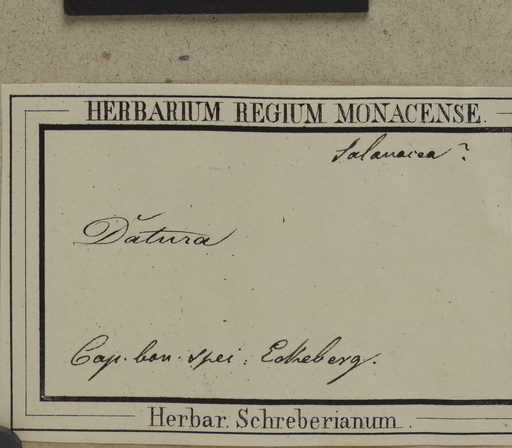 HERBARIUM REGIUM MONACENSE.
Solanacea?
Datura
Cap. bon. spei. Eckeberg.
Herbar. Schreberianum.